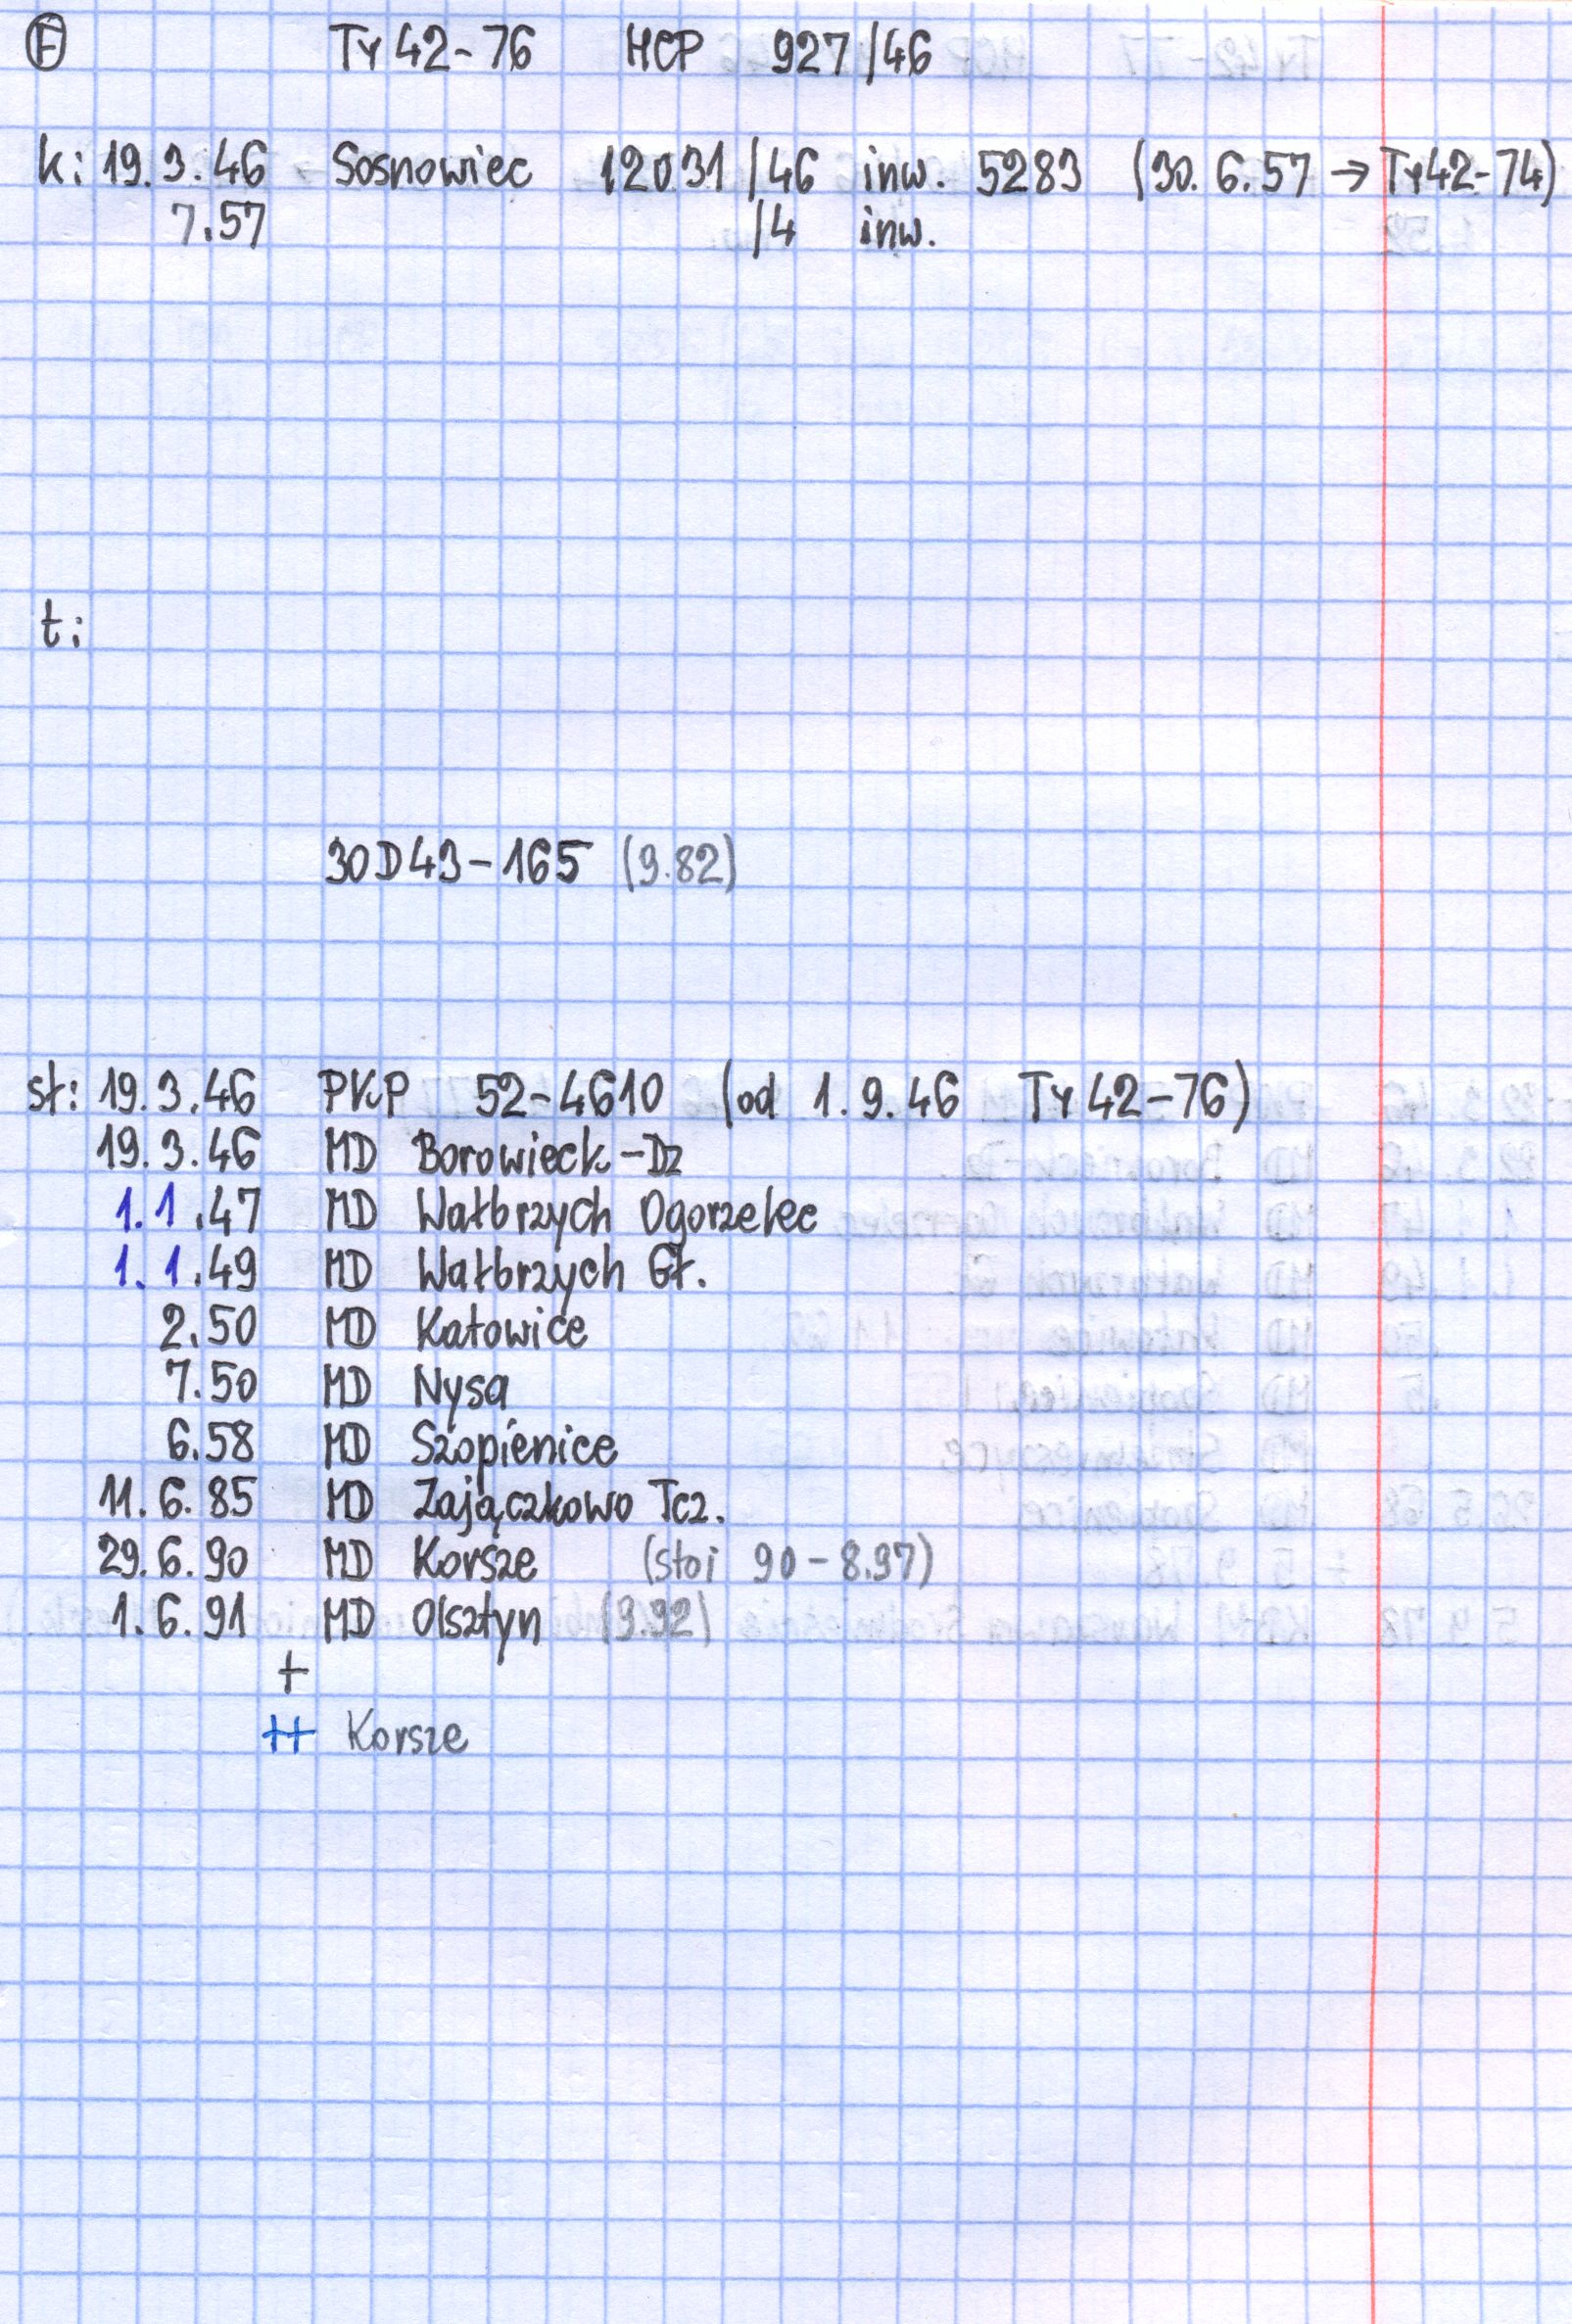 Ⓔ Ty42-76 HCP 927/46
k: 19.3.46 Sosnowiec 12031/46 inw. 5283 (30.6.57 → Ty42-74)
7.57 /4 inw.
t:
30D43-165 (9.82)
st: 19.3.46 PKP 52-4610 (od 1.9.46 Ty42-76)
19.3.46 MD Borowieck-Dz
1.1.47 MD Wałbrzych Ogorzelec
1.1.49 MD Wałbrzych Gł.
2.50 MD Katowice
7.50 MD Nysa
6.58 MD Szopienice
11.6.85 MD Zajączkowo Tcz.
29.6.90 MD Korsze (stoi 90-8.97)
1.6.91 MD Olsztyn (9.92)
+
++ Korsze